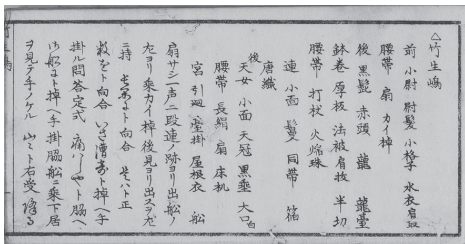 △竹生嶋
前 小尉 尉髪 小格子 水衣肩取
腰帯 扇 カイ棹
後 黒髭 赤頭 龍 龍臺
鉢巻 厚板 法被肩抜 半切
腰帯 打杖 火焔珠
連 小面 鬘 同帯 箔
唐織
後 天女 小面 天冠 黒垂 大口白
腰帯 長絹 扇 床机
宮 引廻 臺掛 屋根衣 舩
扇サシ一声ニ 連ノ跡ヨリ出舩ノ
左ヨリ乗カイ棹後見ヨリ出ス
ニ持 向合 ハト正
ト向合 いさ漕寄ト棹ヘ手
掛ル問答定式 痛ハしやト脇ヘ
ト棹ヘ手掛脇舩ニ乗下居
ヲ見テ手ノケル 山〻ト右受